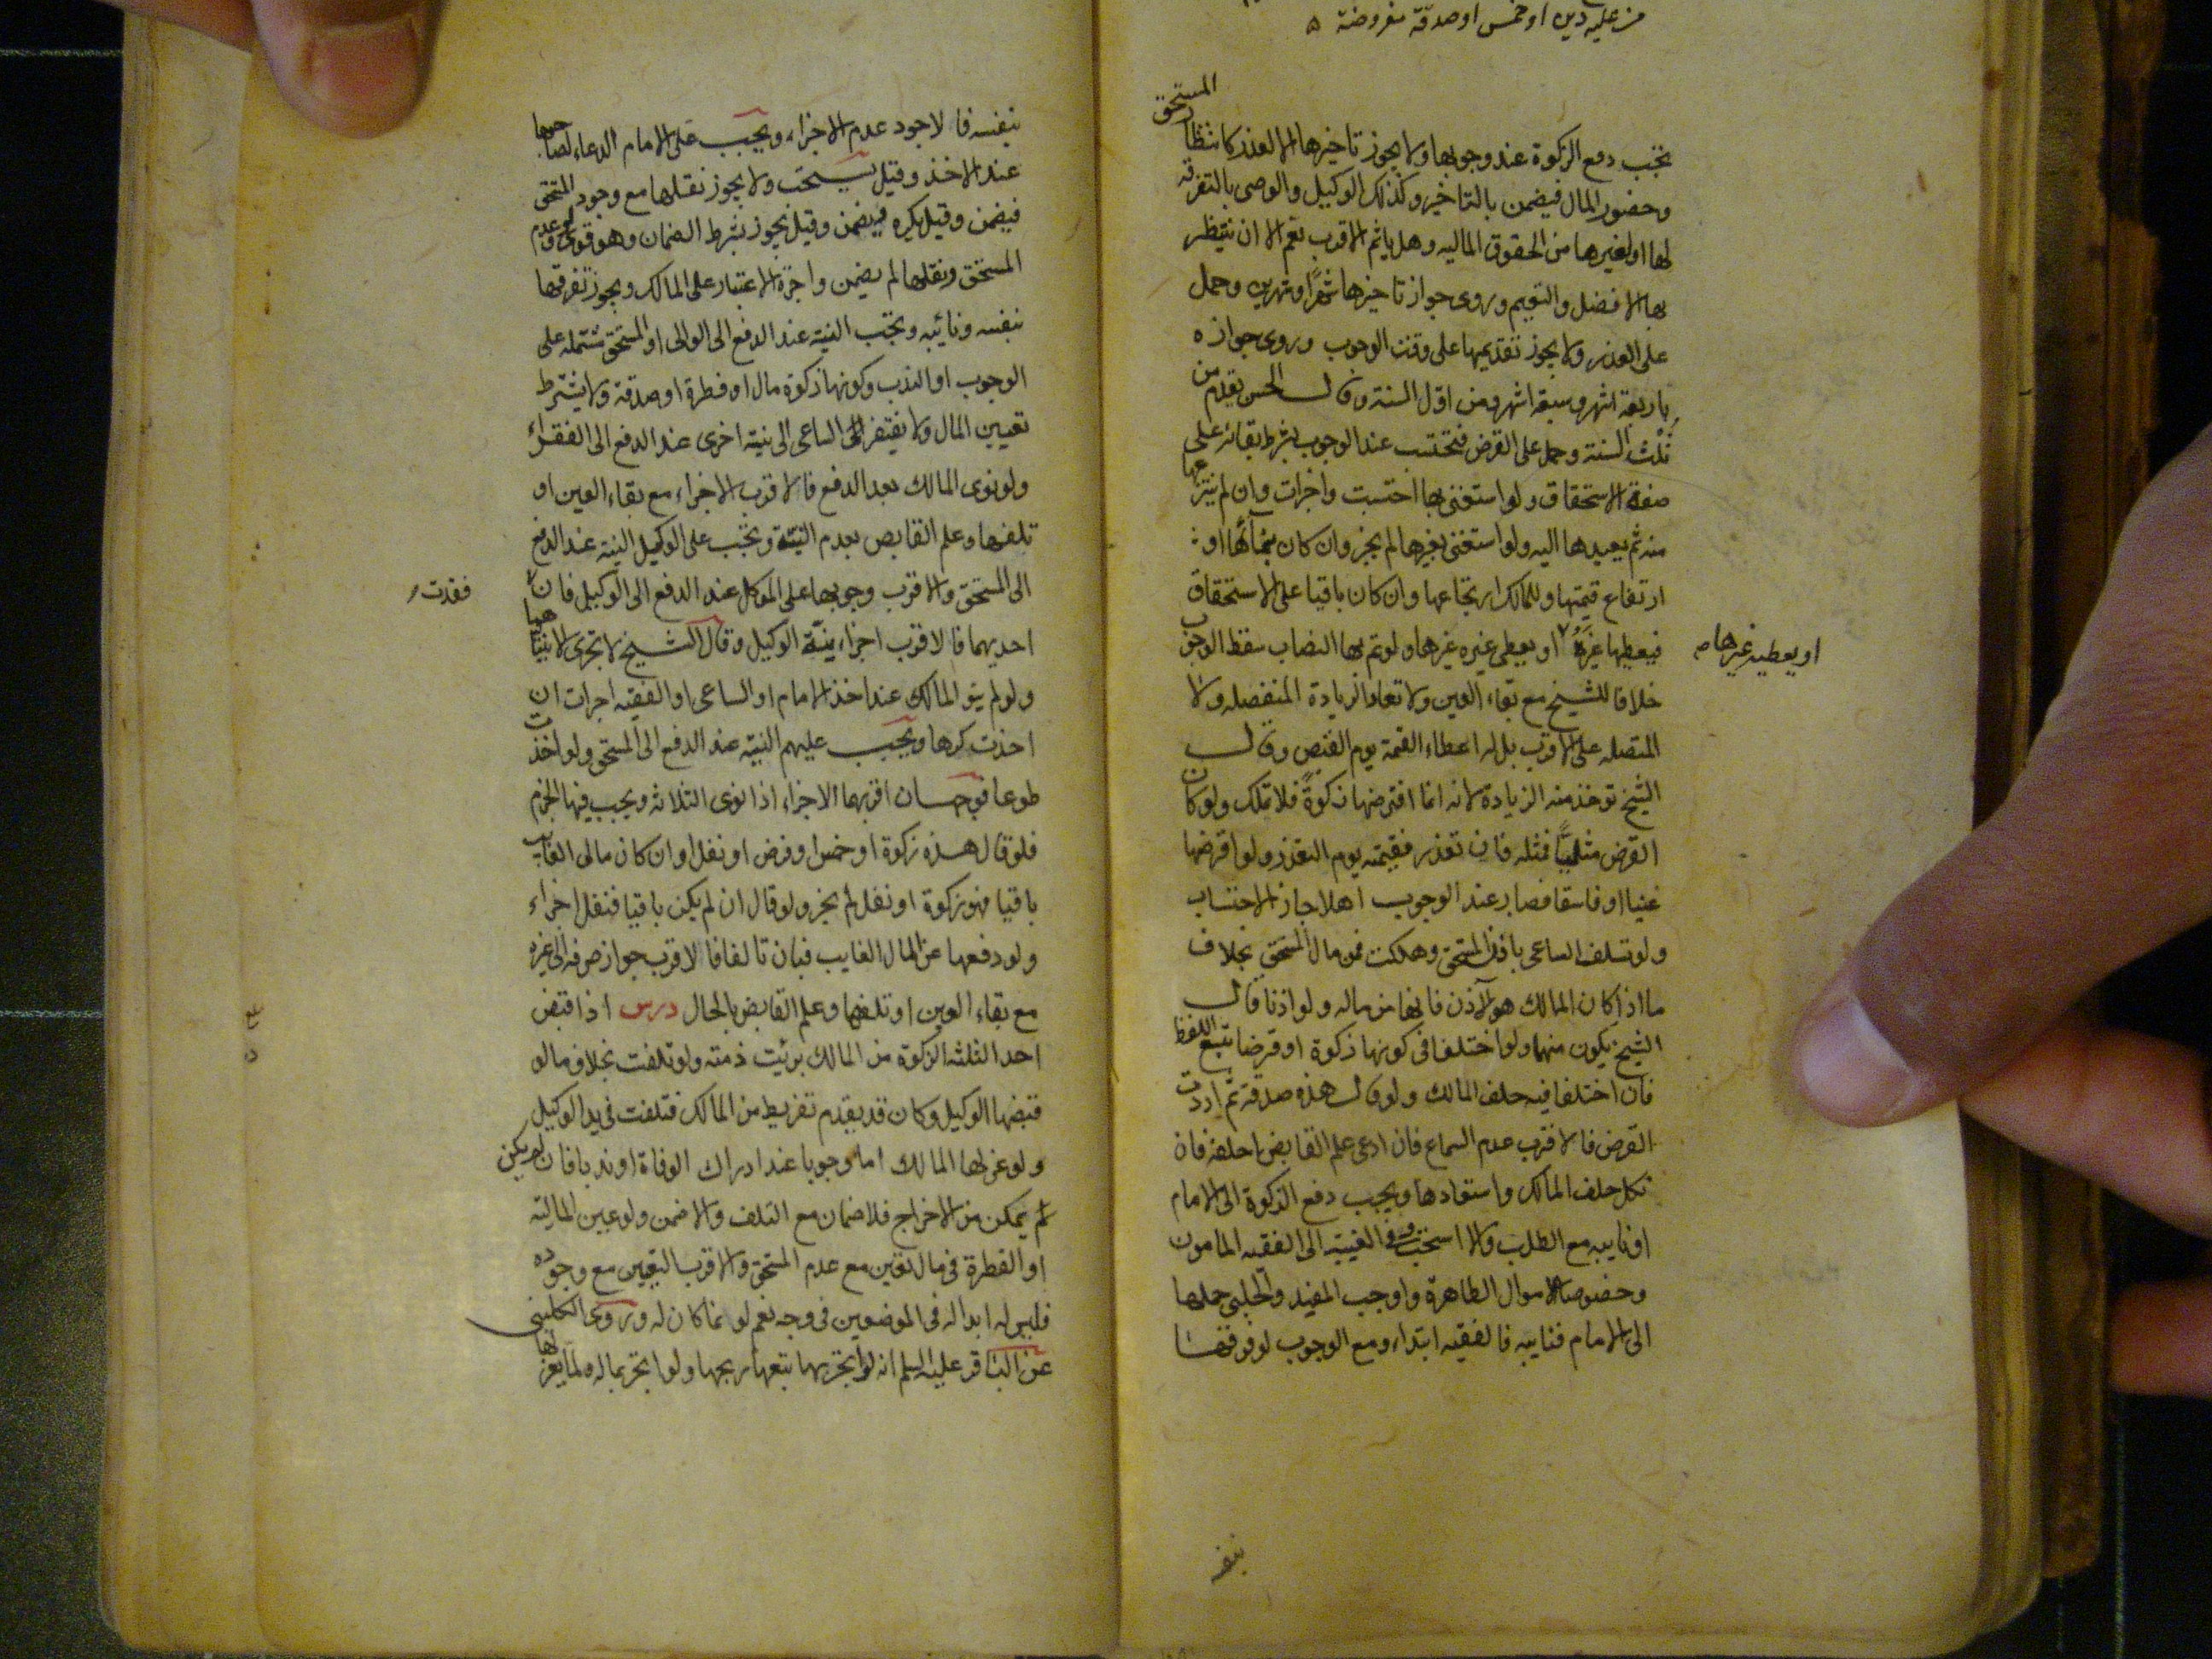 من عليه دين او خمس او صدقة مفروضة
يجب دفع الزكوة عند وجوبها ولا يجوز تاخيرها الا لعذر كانتظار المستحق
وحضور المال فيضمن بالتاخير وكذلك الوكيل والوصى بالتفرقة
لها او لغيرها من الحقوق المالية وهل ياثم الاقرب نعم الا ان ينتظر
بها الافضل والتعميم وروى جواز تاخيرها شهرا وشهرين وحمل
على العذر ولا يجوز تقديمها على وقت الوجوب وروى جوازه
باربعة اشهر وسبعة اشهر ومن اول السنة وقال الحسن يقدم من
ثلث السنة وحمل على القرض فتحتسب عند الوجوب بشرط بقائه على
صفة الاستحقاق ولو استغنى بها احتسبت واجزات وان لم ينتزعها
منه ثم يعيدها اليه ولو استغنى بغيرها لم يجز وان كان بنمائها او
ارتفاع قيمتها وللمالك ارتجاعها وان كان باقيا على الاستحقاق
فيعطيها غيره او يعطى غيره غيرها ولو تم بها النصاب سقط الوجوب
او يعطيه غيرها صح
خلافا للشيخ مع بقاء العين ولا تعاد الزيادة المنفصله ولا
المتصله على الاقرب بل له اعطاء القيمة يوم القبض وقال
الشيخ توخذ منه الزيادة لانه انما اقترضها زكوة فلا تملك ولو كان
القرض مثليا فمثله فان تعذر فقيمته يوم التعذر ولو اقرضها
غنيا او فاسقا فصار عند الوجوب اهلا جاز الاحتساب
ولو تسلف الساعى باذن المستحق وهلكت فمن مال المستحق بخلاف
ما اذا كان المالك هو الآذن فانها من ماله ولو اذنا قال
الشيخ يكون منهما ولو اختلفا فى كونها زكوة او قرضا يتبع اللفظ
فان اختلفا فيه حلف المالك ولو قال هذه صدقة ثم اردت
القرض فالاقرب عدم السماع فان ادعى علم القابض احلفه فان
نكل حلف المالك واستعادها ويجب دفع الزكوة الى الامام
او نايبه مع الطلب والا استحب وفى الغيبة الى الفقيه المامون
وخصوصا الاموال الظاهرة واوجب المفيد والحلبى حملها
الى الامام فنايبه فالفقيه ابتداء ومع الوجوب لو فرقها
بنفسه
بنفسه فالاجود عدم الاجزاء ويجب على الامام الدعاء لصاحبها
عند الاخذ وقيل يستحب ولا يجوز نقلها مع وجود المستحق
فيضمن وقيل يكره فيضمن وقيل يجوز بشرط الضمان وهو قوى ولو عدم
المستحق ونقلها لم يضمن واجرة الاعتبار على المالك ويجوز تفرقتها
بنفسه ونائبه ويجب النية عند الدفع الى الوالى او المستحق مشتملة على
الوجوب او الندب وكونها زكوة مال او فطرة او صدقة ولا يشترط
تعيين المال ولا يفتقر الى الساعى الى نية اخرى عند الدفع الى الفقراء
ولو نوى المالك بعد الدفع فالاقرب الاجزاء مع بقاء العين او
تلفها وعلم القابض بعدم النية وتجب على الوكيل النية عند الدفع
الى المستحق والاقرب وجوبها على الموكل عند الدفع الى الوكيل فان
فقدت
احديهما فالاقرب اجزاء نية الوكيل وقال الشيخ لا تجزى الا بنيتهما
ولو لم ينو المالك عند اخذ الامام او الساعى او الفقيه اجزات ان
اخذت كرها ويجب عليهم النية عند الدفع الى المستحق ولو اخذت
طوعا فوجهان اقربهما الاجزاء اذا نوى الثلاثة ويجب فيها الجزم
فلو قال هذه زكوة او خمس او فرض او نفل او ان كان مالى الغايب
باقيا فهو زكوة او نفل لم يجز ولو قال ان لم يكن باقيا فنفل اجزاء
ولو دفعها عن المال الغايب فبان تالفا فالاقرب جواز صرفه الى غيره
مع بقاء العين او تلفها وعلم القابض بالحال درس اذا قبض
احد الثلثة الزكوة من المالك برئيت ذمته ولو تلفت بخلاف ما لو
قبضها الوكيل وكان قد يقدم تفريط من المالك فتلفت فى يد الوكيل
ولو عزلها المالك اما وجوبا عند ادراك الوفاة او ندبا فان لم يكن
لم يتمكن من الاخراج فلا ضمان مع التلف والا ضمن ولو عين المالية
او الفطرة فى مال تعين مع عدم المستحق والاقرب التعيين مع وجوده
فليس له ابداله فى الموضعين فى وجه نعم لو نما كان له وروى الكلينى
عن الباقر عليه السلم انه لو اتجر بها تبعها ربحها ولو اتجر بماله ولما يعزلها